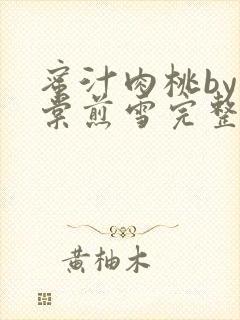 蜜汁肉桃by
棠煎雪完整
黄柚木